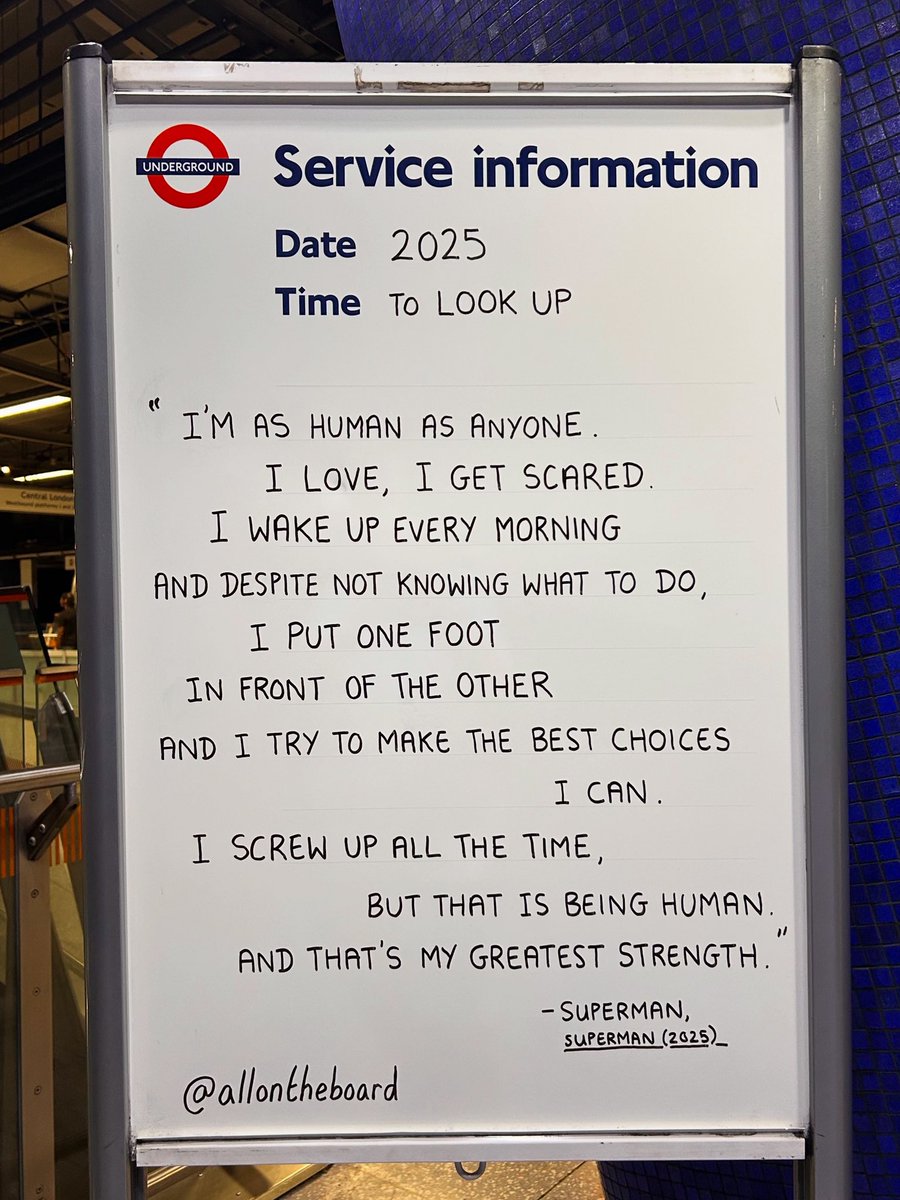 UNDERGROUND
Service information
Date 2025
Time TO LOOK UP
" I'M AS HUMAN AS ANYONE.
I LOVE, I GET SCARED.
I WAKE UP EVERY MORNING
AND DESPITE NOT KNOWING WHAT TO DO,
I PUT ONE FOOT
IN FRONT OF THE OTHER
AND I TRY TO MAKE THE BEST CHOICES
I CAN.
I SCREW UP ALL THE TIME,
BUT THAT IS BEING HUMAN.
AND THAT'S MY GREATEST STRENGTH."
- SUPERMAN,
SUPERMAN (2025)
@allontheboard
Central London